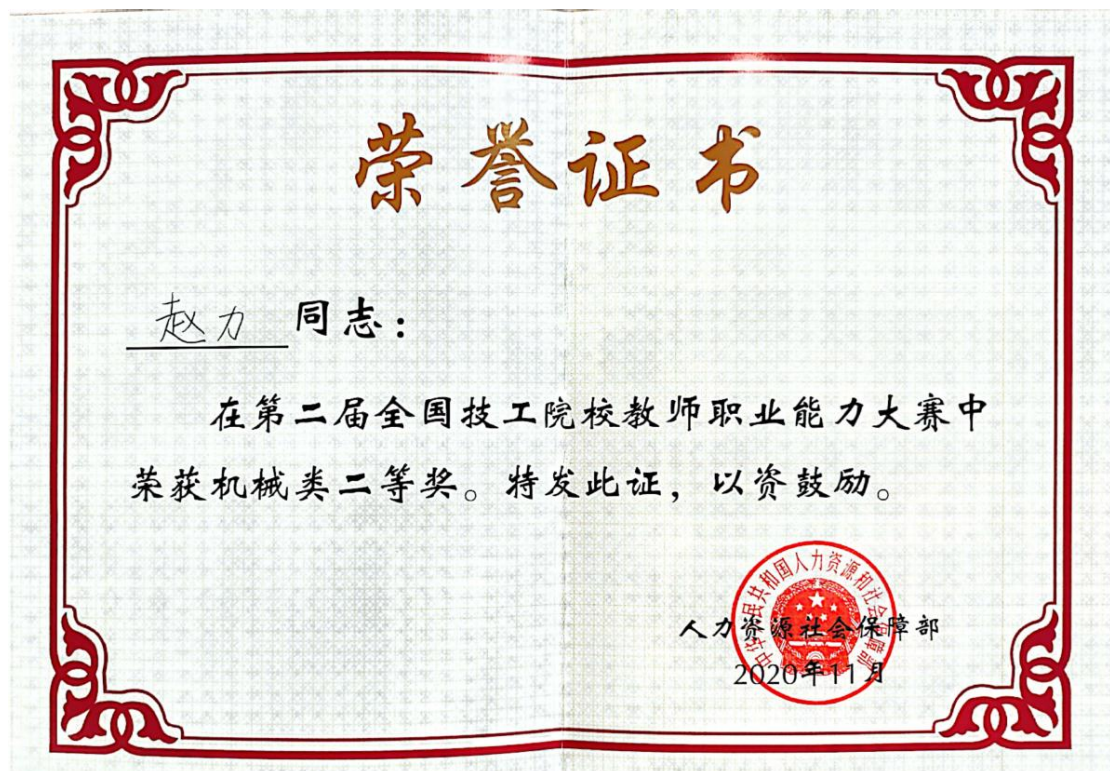 荣誉证书
赵力 同志：
在第二届全国技工院校教师职业能力大赛中
荣获机械类二等奖。特发此证，以资鼓励。
中华人民共和国人力资源和社会保障部
人力资源社会保障部
2020年11月